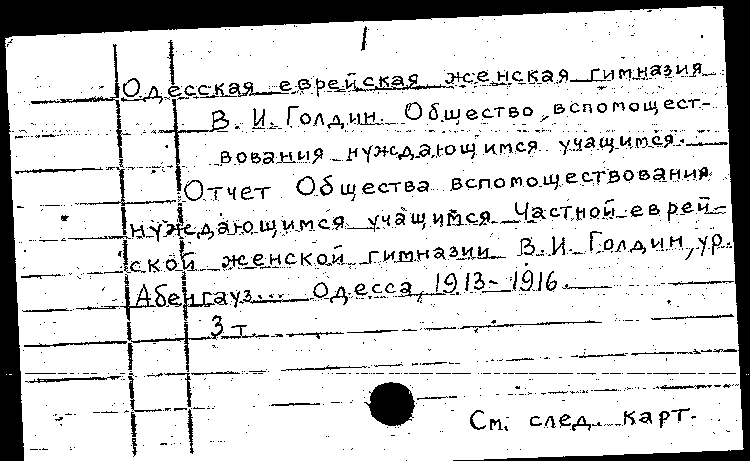 1
Одесская еврейская женская гимназия
В. И. Голдин. Общество вспомощест-
вования нуждающимся учащимся.
Отчет Общества вспомоществования
нуждающимся учащимся Частной еврей-
ской женской гимназии В. И. Голдин, ур.
Абенгауз... Одесса, 1913-1916.
3 т.
См. след. карт.